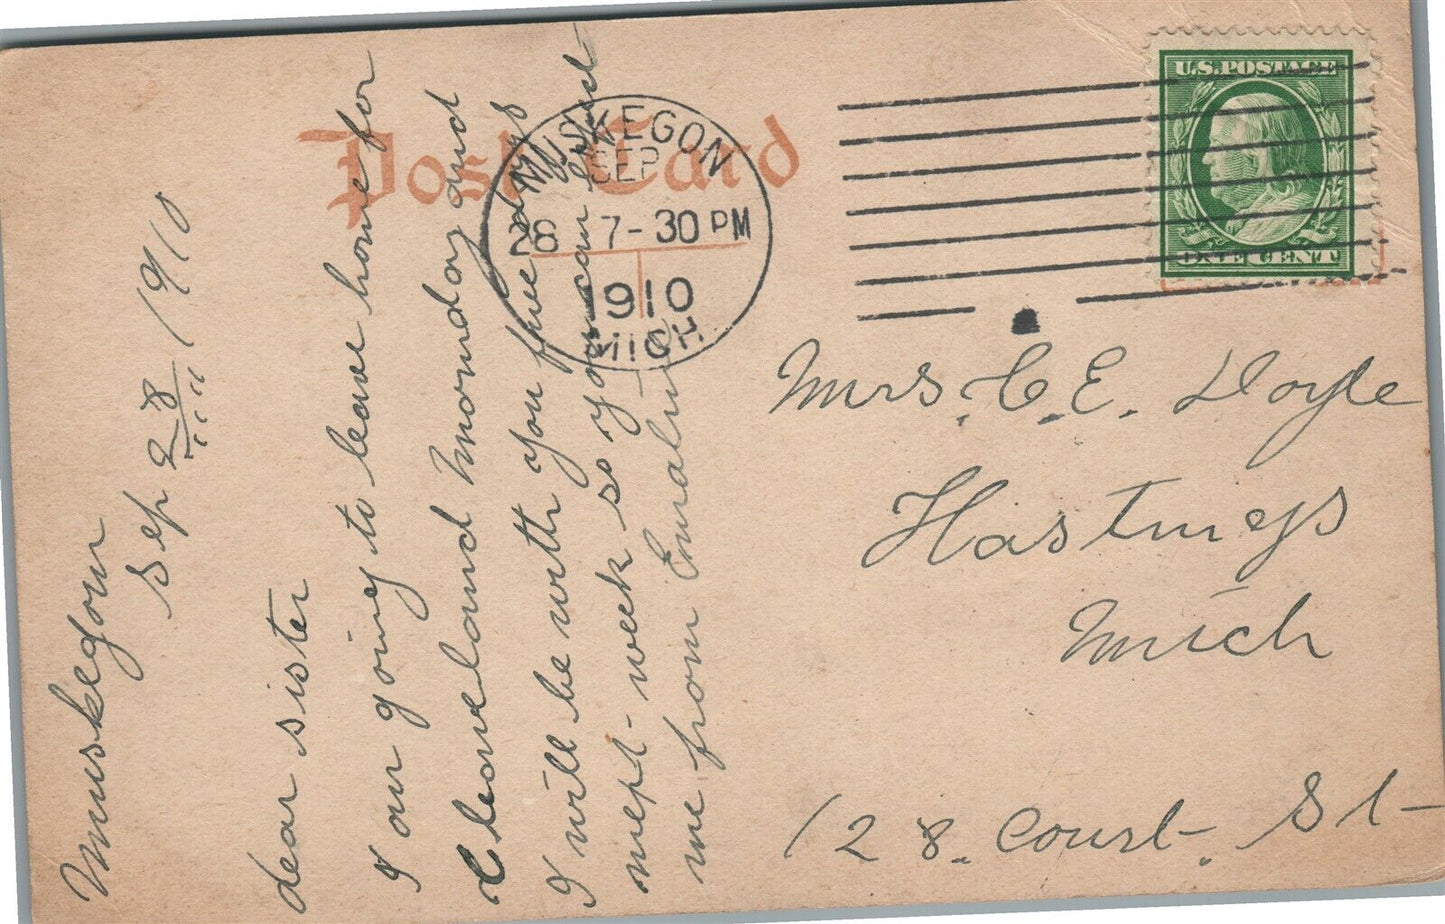 Post Card
MUSKEGON
SEP
28 7-30 PM
1910
MICH
U.S. POSTAGE
ONE CENT
Muskegon
Sep 28 1910
dear sister
I am going to leave home for
Cleveland Monday and
I will be with you five days
next week so you can expect
me from Emaline
Mrs. C. E. Doyle
Hastings
Mich
128. Court. St